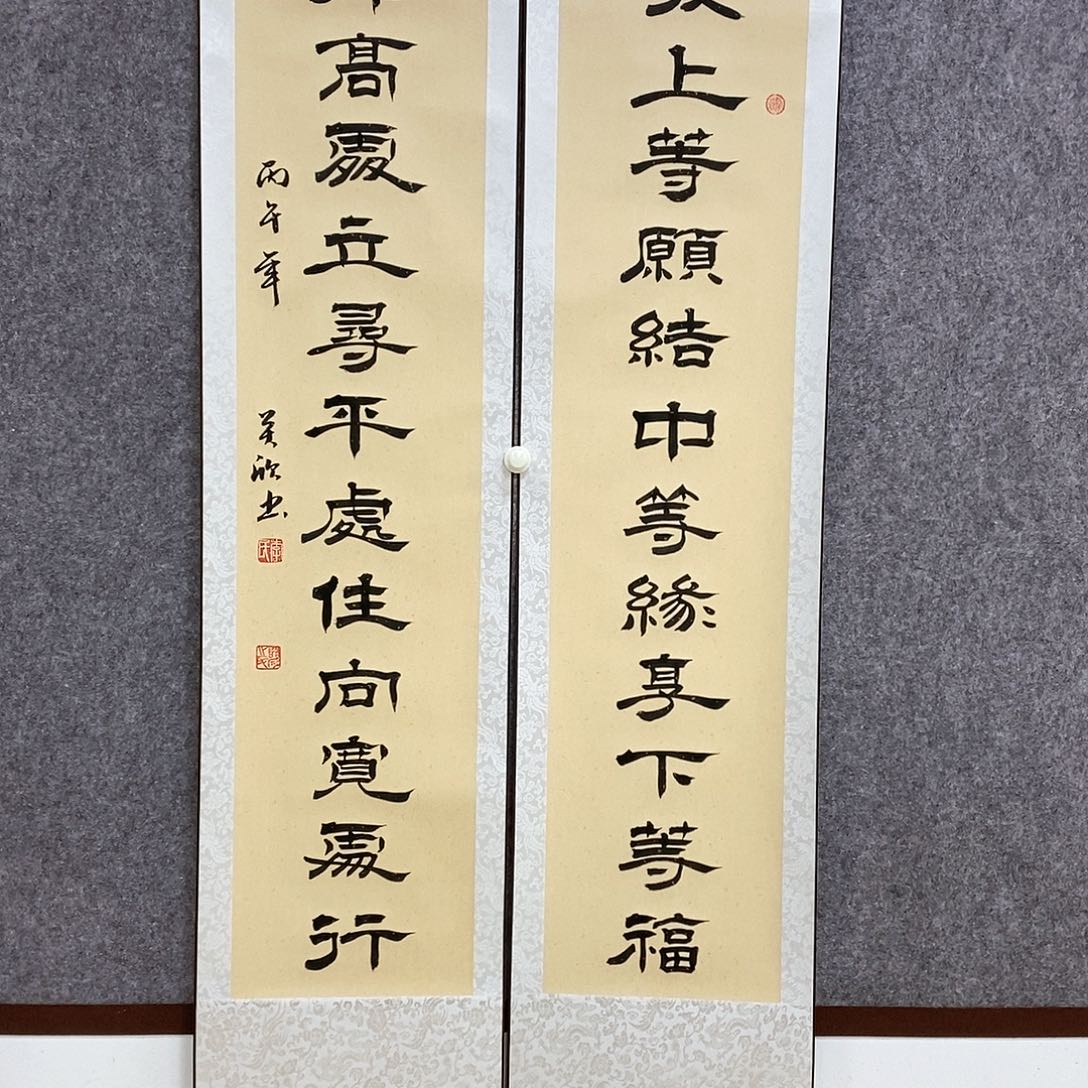 上等願結中等緣享下等福
高處立尋平處住向寬處行
丙午年
欣书